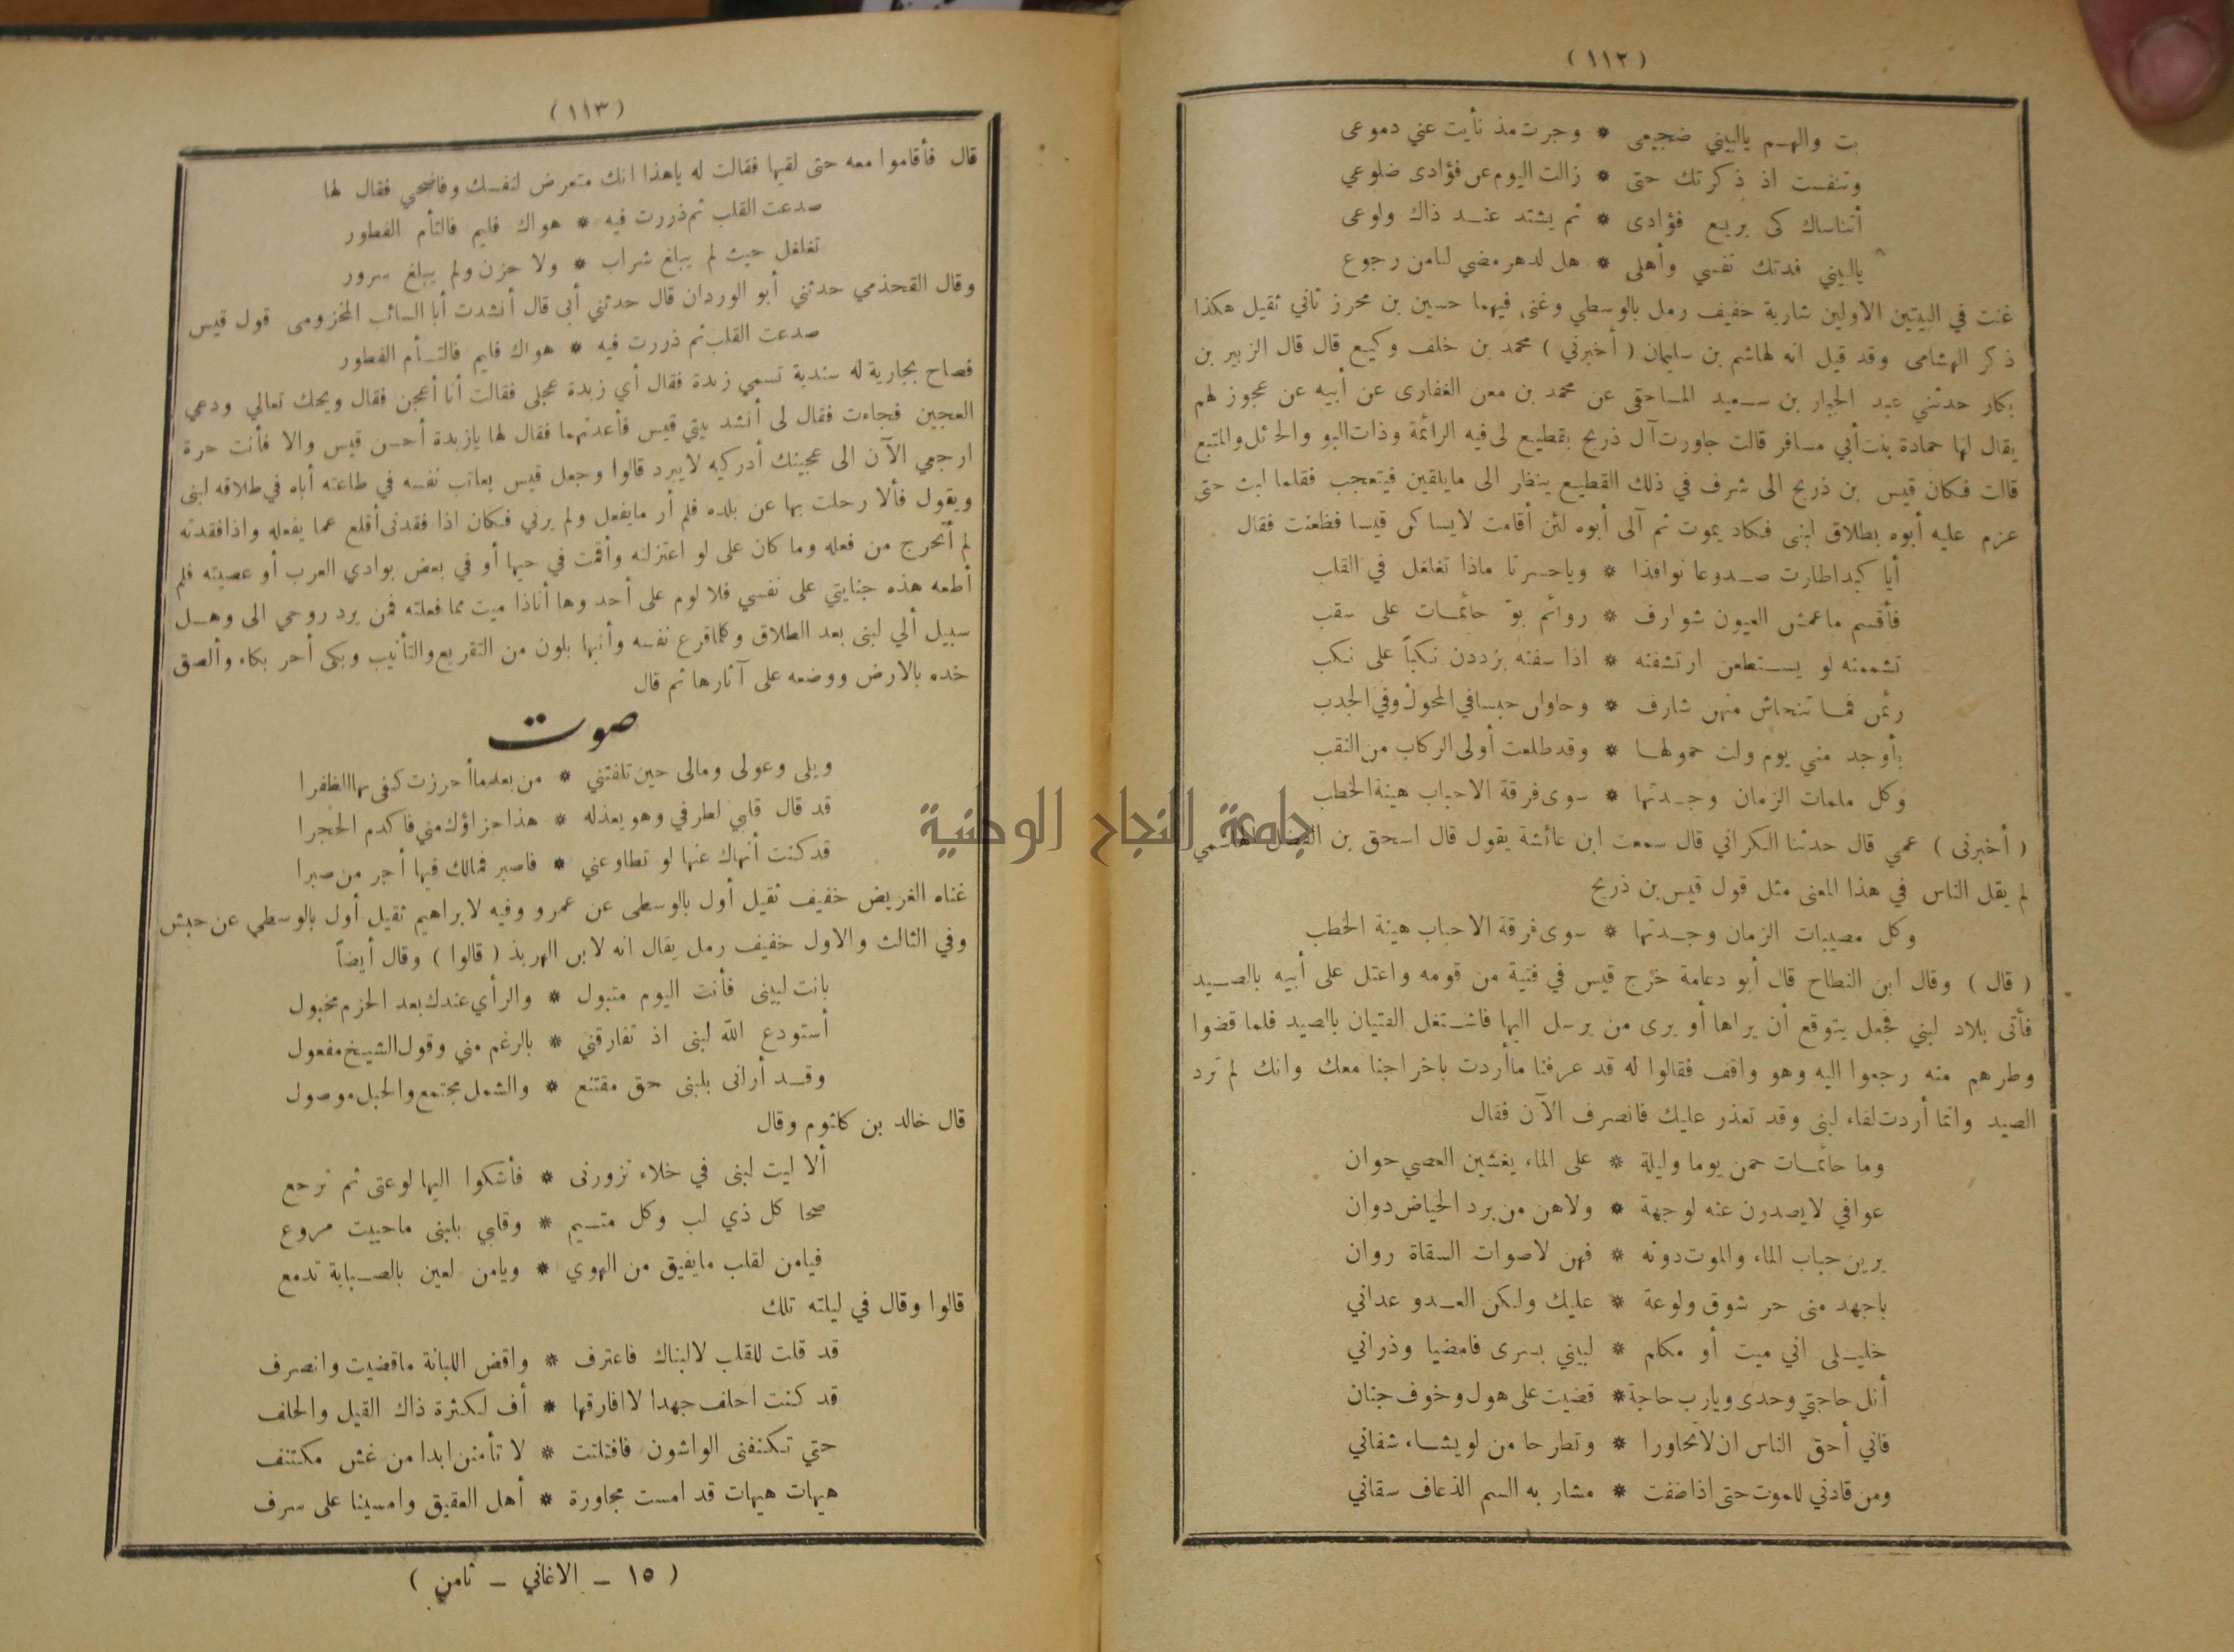 ( ١١٢ )
بت والهـم يالبيني ضجيعى * وجرت مذ نأيت عني دموعى
وتنفست اذ ذكرتك حتى * زالت اليوم عن فؤادى ضلوعي
أتناساك كى يريع فؤادى * ثم يشتد عنـد ذاك ولوعى
يالبيني فدتك نفسي وأهلى * هل لدهر مضي لنا من رجوع
غنت في البيتين الاولين شارية خفيف رمل بالوسطي وغنى فيهما حسين بن محرز ثاني ثقيل هكذا
ذكر الهشامى وقد قيل انه لهاشم بن سليمان ( أخبرني ) محمد بن خلف وكيع قال قال الزبير بن
بكار حدثني عبد الجبار بن سـعيد المساحقى عن محمد بن معن الغفارى عن أبيه عن عجوز لهم
يقال لها حمادة بنت أبي مسافر قالت جاورت آل ذريح بقطيع لى فيه الرائمة وذات البو والحائل والمتبع
قالت فكان قيس بن ذريح الى شرف في ذلك القطيع ينظر الى مايلقين فيتعجب فقلما لبث حتى
عزم عليه أبوه بطلاق لبنى فكاد يموت ثم آلى أبوه لئن أقامت لايساكن قيسا فظعنت فقال
أيا كبدا طارت صـدوعا نوافذا * وياحسرتا ماذا تغلغل في القلب
فأقسم ماعمش العيون شوارف * روائم بوّ حائمـات على سقب
تشممنه لو يسـتطعن ارتشفنه * اذا سفنه يزددن نكباً على نكب
رئمن فمـا تنحاش منهن شارف * وحاوان حبسا في المحول وفي الجدب
بأوجد مني يوم ولت حمولهـا * وقد طلعت أولى الركاب من النقب
وكل ملمات الزمان وجـدتها * سوى فرقة الاحباب هينة الخطب
( أخبرنى ) عمي قال حدثنا الكراني قال سمعت ابن عائشة يقول قال اسحق بن الفضل الهاشمي
لم يقل الناس في هذا المعنى مثل قول قيس بن ذريح
وكل مصيبات الزمان وجـدتها * سوى فرقة الاحباب هينة الخطب
( قال ) وقال ابن النطاح قال أبو دعامة خرج قيس في فتية من قومه واعتل على أبيه بالصـيد
فأتى بلاد لبني فجعل يتوقع أن يراها أو يرى من يرسل اليها فاشـتغل الفتيان بالصيد فلما قضوا
وطرهم منه رجعوا اليه وهو واقف فقالوا له قد عرفنا ماأردت باخراجنا معك وانك لم ترد
الصيد وانما أردت لقاء لبنى وقد تعذر عليك فانصرف الآن فقال
وما حائمـات حمن يوما وليلة * على الماء يغشين العصي حوان
عوافي لايصدرن عنه لوجهة * ولاهن من برد الحياض دوان
يرين حباب الماء والموت دونه * فهن لاصوات السقاة روان
باجهد منى حر شوق ولوعة * عليك ولكن العـدو عداني
خليـلى انى ميت أو مكلم * لبيني بسرى فامضيا وذراني
أنل حاجتي وحدى ويارب حاجة * قضيت على هول وخوف جنان
فاني أحق الناس ان لاتحاورا * وتطرحا من لو يشـاء شفاني
ومن قادني للموت حتى اذا صفت * مشاربه السم الذعاف سقاني
( ١١٣ )
قال فأقاموا معه حتى لقيها فقالت له ياهذا انك متعرض لنفسك وفاضحي فقال لها
صدعت القلب ثم ذررت فيه * هواك فليم فالتأم الفطور
تغلغل حيث لم يبلغ شراب * ولا حزن ولم يبلغ سرور
وقال القحذمي حدثني أبو الوردان قال حدثني أبى قال أنشدت أبا السائب المخزومى قول قيس
صدعت القلب ثم ذررت فيه * هواك فليم فالتـأم الفطور
فصاح بجارية له سندية تسمي زبدة فقال أي زبدة عجلى فقالت أنا أعجن فقال ويحك تعالي ودعي
العجين فجاءت فقال لى أنشد بيتي قيس فأعدتهما فقال لها يازبدة أحسن قيس والا فأنت حرة
ارجعي الآن الى عجينك أدركيه لايبرد قالوا وجعل قيس يعاتب نفسه في طاعته أباه في طلاقه لبنى
ويقول فألا رحلت بها عن بلده فلم أر مايفعل ولم يرني فكان اذا فقدنى أقلع عما يفعله واذا فقدته
لم أتحرج من فعله وما كان على لو اعتزلته وأقمت في حيها أو في بعض بوادي العرب أو عصيته فلم
أطعه هذه جنايتي على نفسي فلا لوم على أحد وها أناذا ميت مما فعلته فمن يرد روحي الى وهـل
سبيل ألي لبنى بعد الطلاق وكلما قرع نفسه وأنبها بلون من التقريع والتأنيب وبكى أحر بكاء وألصق
خده بالارض ووضعه على آثارها ثم قال
صوت
ويلى وعولى ومالى حين تلفتني * من بعد ماأحرزت كفى بها الظفرا
قد قال قلبي لطرفي وهو يعذله * هذا جزاؤك مني فاكدم الحجرا
قد كنت أنهاك عنها لو تطاوعني * فاصبر فمالك فيها أجر من صبرا
غناه الغريض خفيف ثقيل أول بالوسطى عن عمرو وفيه لابراهيم ثقيل أول بالوسطي عن حبش
وفي الثالث والاول خفيف رمل يقال انه لابن الهربذ ( قالوا ) وقال أيضاً
بانت لبيني فأنت اليوم متبول * والرأي عندك بعد الحزم مخبول
أستودع الله لبنى اذ تفارقني * بالرغم مني وقول الشيخ مفعول
وقـد أرانى بلبنى حق مقتنع * والشمل مجتمع والحبل موصول
قال خالد بن كلثوم وقال
ألا ليت لبنى في خلاء تزورنى * فأشكوا اليها لوعتى ثم ترجع
صحا كل ذي لب وكل متـيم * وقلبي بلبنى ماحييت مروع
فيامن لقلب مايفيق من الهوي * ويامن لعين بالصـبابة تدمع
قالوا وقال في ليلته تلك
قد قلت للقلب لالبناك فاعترف * واقض اللبانة ماقضيت وانصرف
قد كنت احلف جهدا لاافارقها * أف لكثرة ذاك القيل والحلف
حتي تكنفنى الواشون فافتلتت * لا تأمنن ابدا من غش مكتنف
هيهات هيهات قد امست مجاورة * أهل العقيق وامسينا على سرف
( ١٥ – الاغاني – ثامن )
جامعة النجاح الوطنية